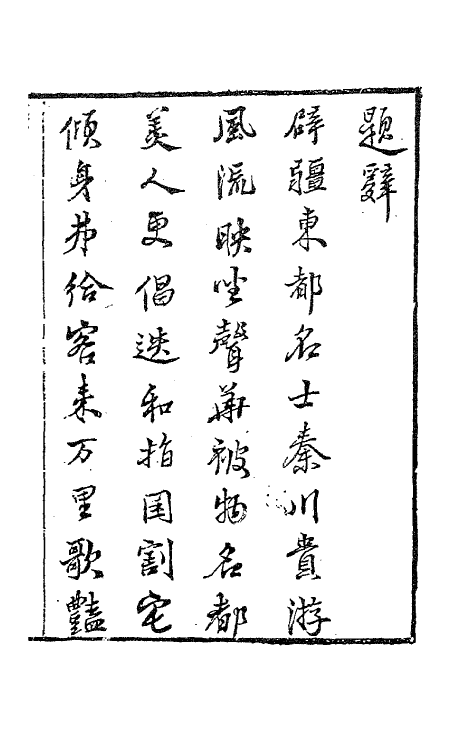 題辭
辟疆東都名士秦川貴游
風流映坐聲華被物名都
美人更倡迭和指囷割宅
傾身弟給客来万里歌豔